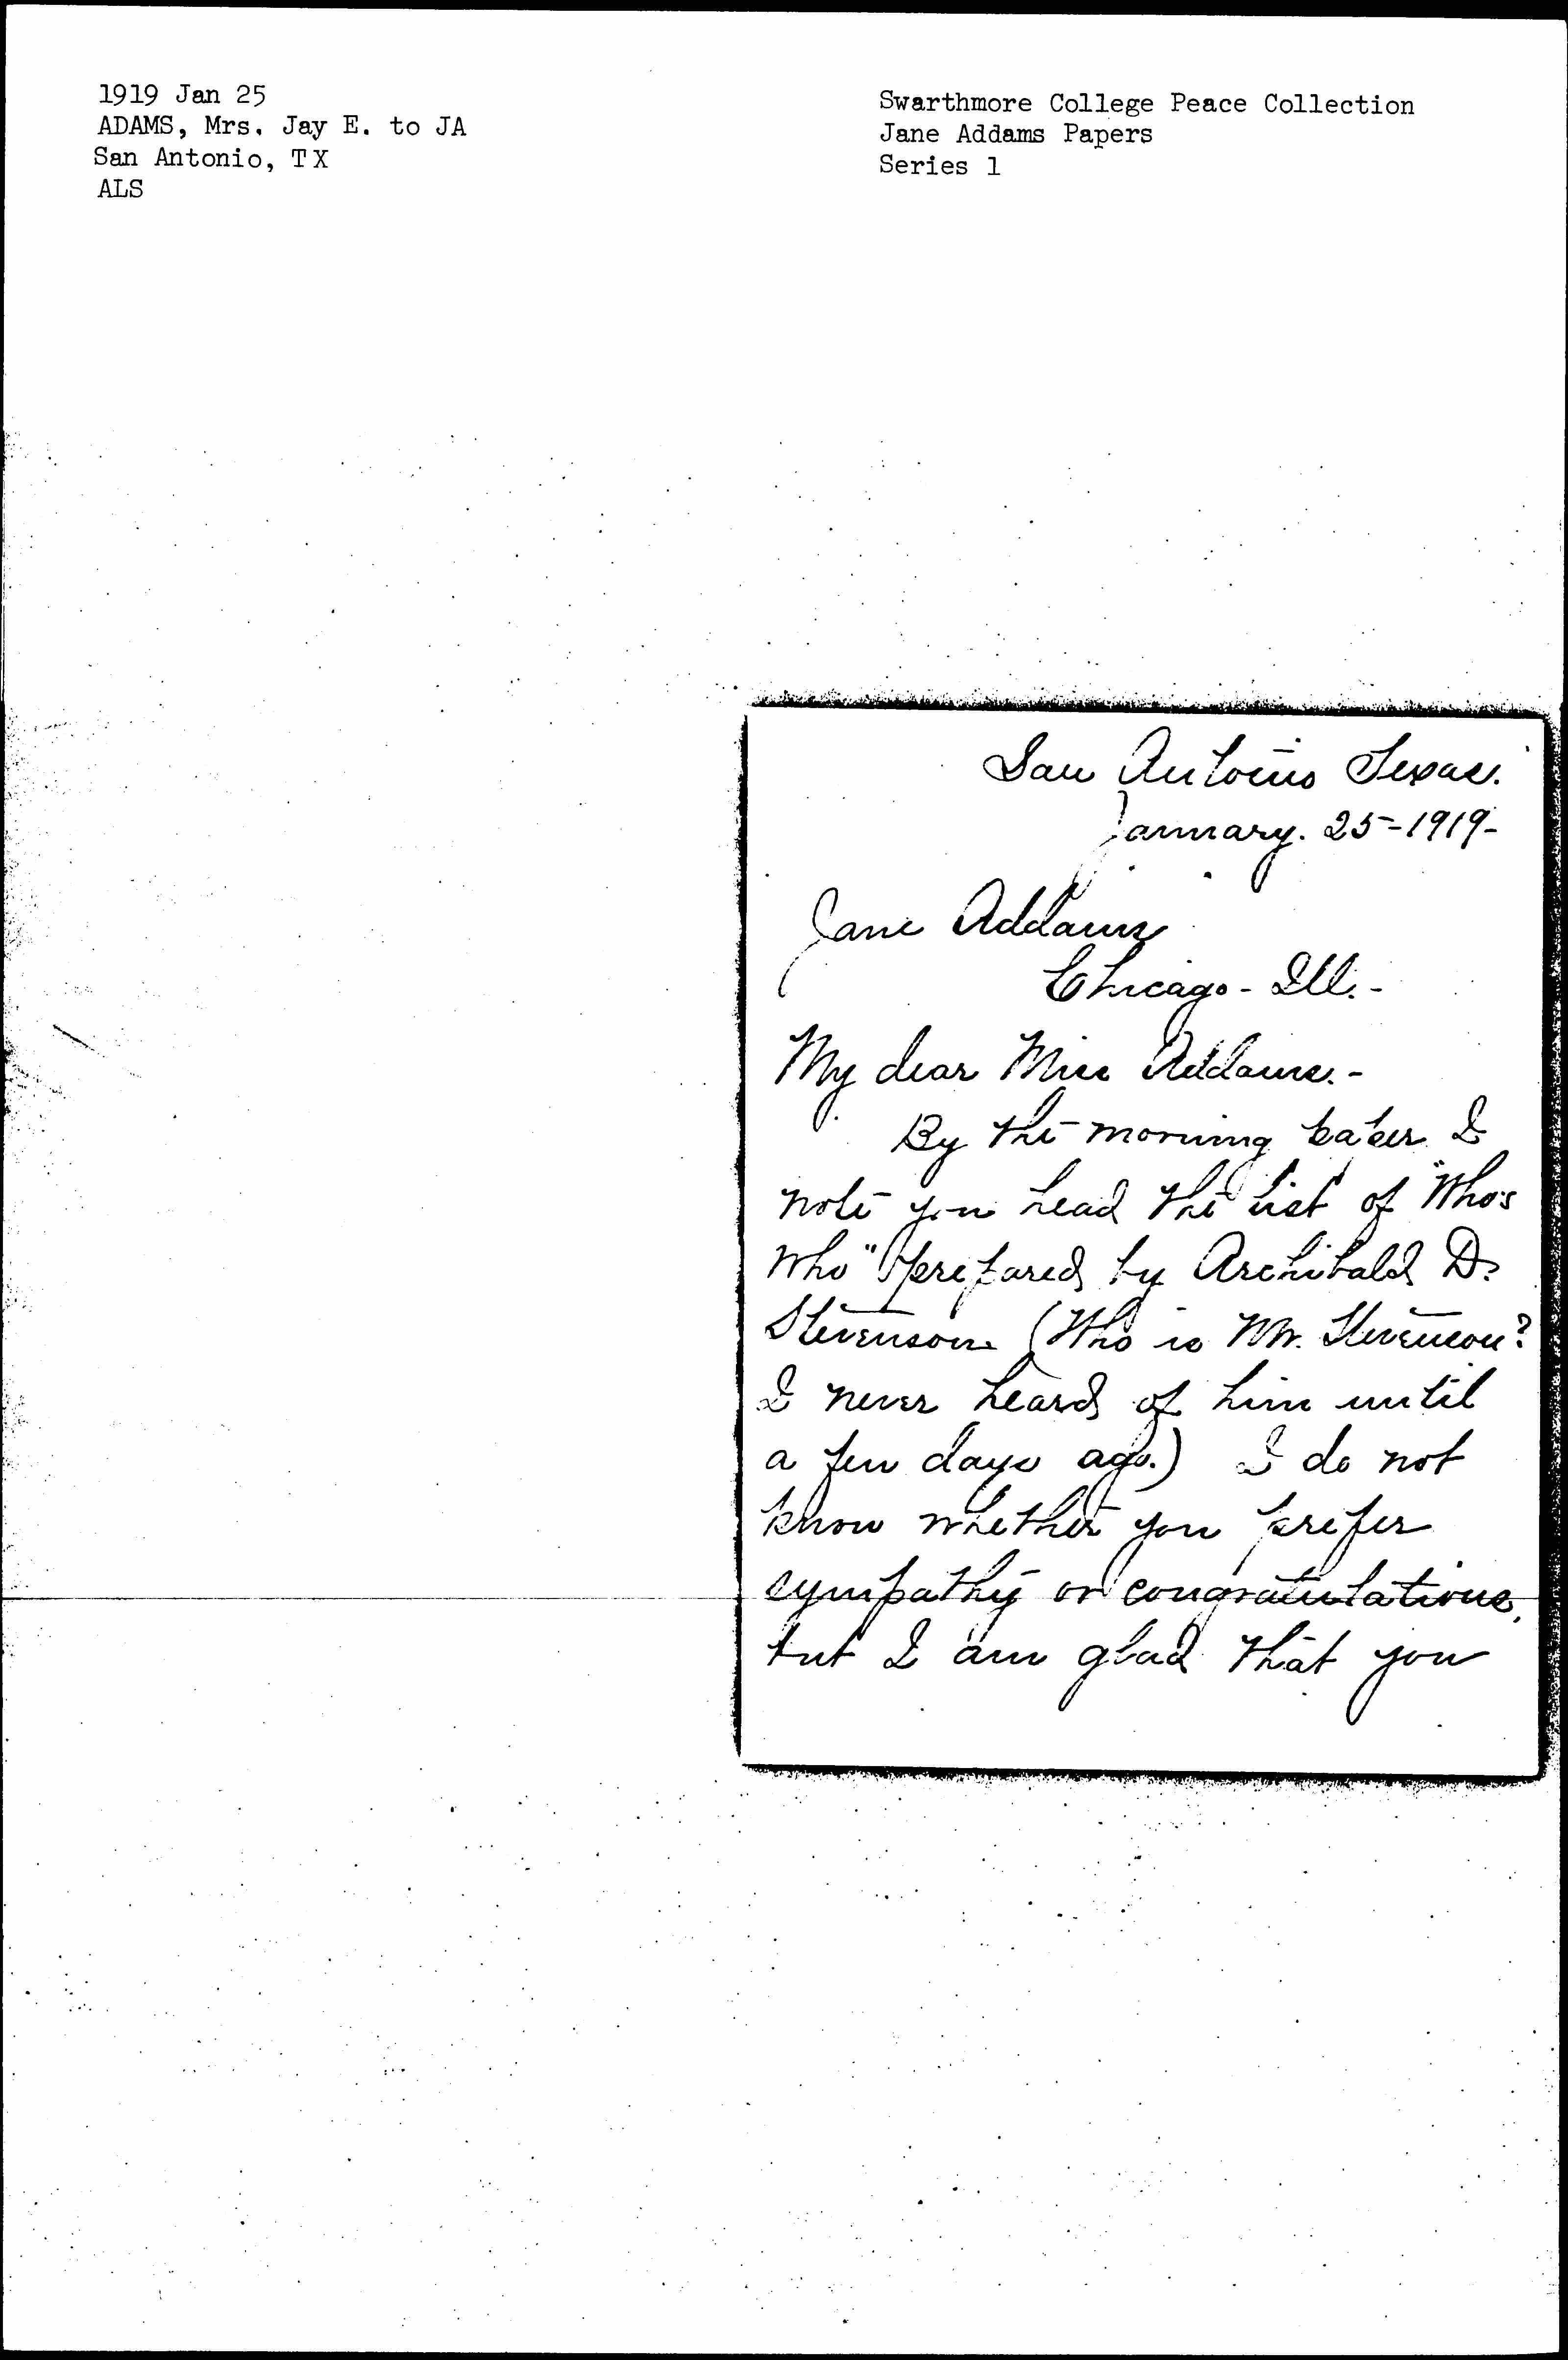 1919 Jan 25
ADAMS, Mrs. Jay E. to JA
San Antonio, TX
ALS
Swarthmore College Peace Collection
Jane Addams Papers
Series 1
San Antonio Texas.
January. 25-1919-
Jane Addams
Chicago - Ill. -
My dear Miss Addams. -
By the morning paper I
note you head the list of "Who's
Who" prepared by Archibald D.
Stevenson (Who is Mr. Stevenson?
I never heard of him until
a few days ago.) I do not
know whether you prefer
sympathy or congratulations,
but I am glad that you